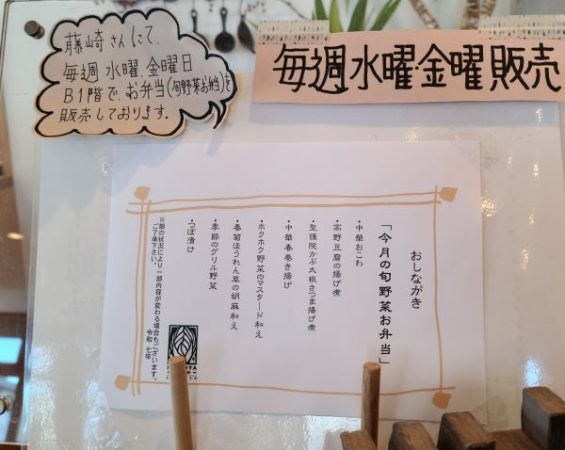 藤崎さんにて、
毎週 水曜、金曜日
B1階で、お弁当(旬野菜お弁当)を
販売しております。
毎週 水曜・金曜 販売
おしながき
「今月の旬野菜お弁当」
・中華おこわ
・高野豆腐の揚げ煮
・聖護院かぶ大根さつま揚げ煮
・中華春巻き揚げ
・ホクホク野菜のマスタード和え
・春菊ほうれん草の胡麻和え
・季節のグリル野菜
・つぼ漬け
※畑の状況により一部内容が変わる場合もございます。
ご了承下さい。
令和 七年